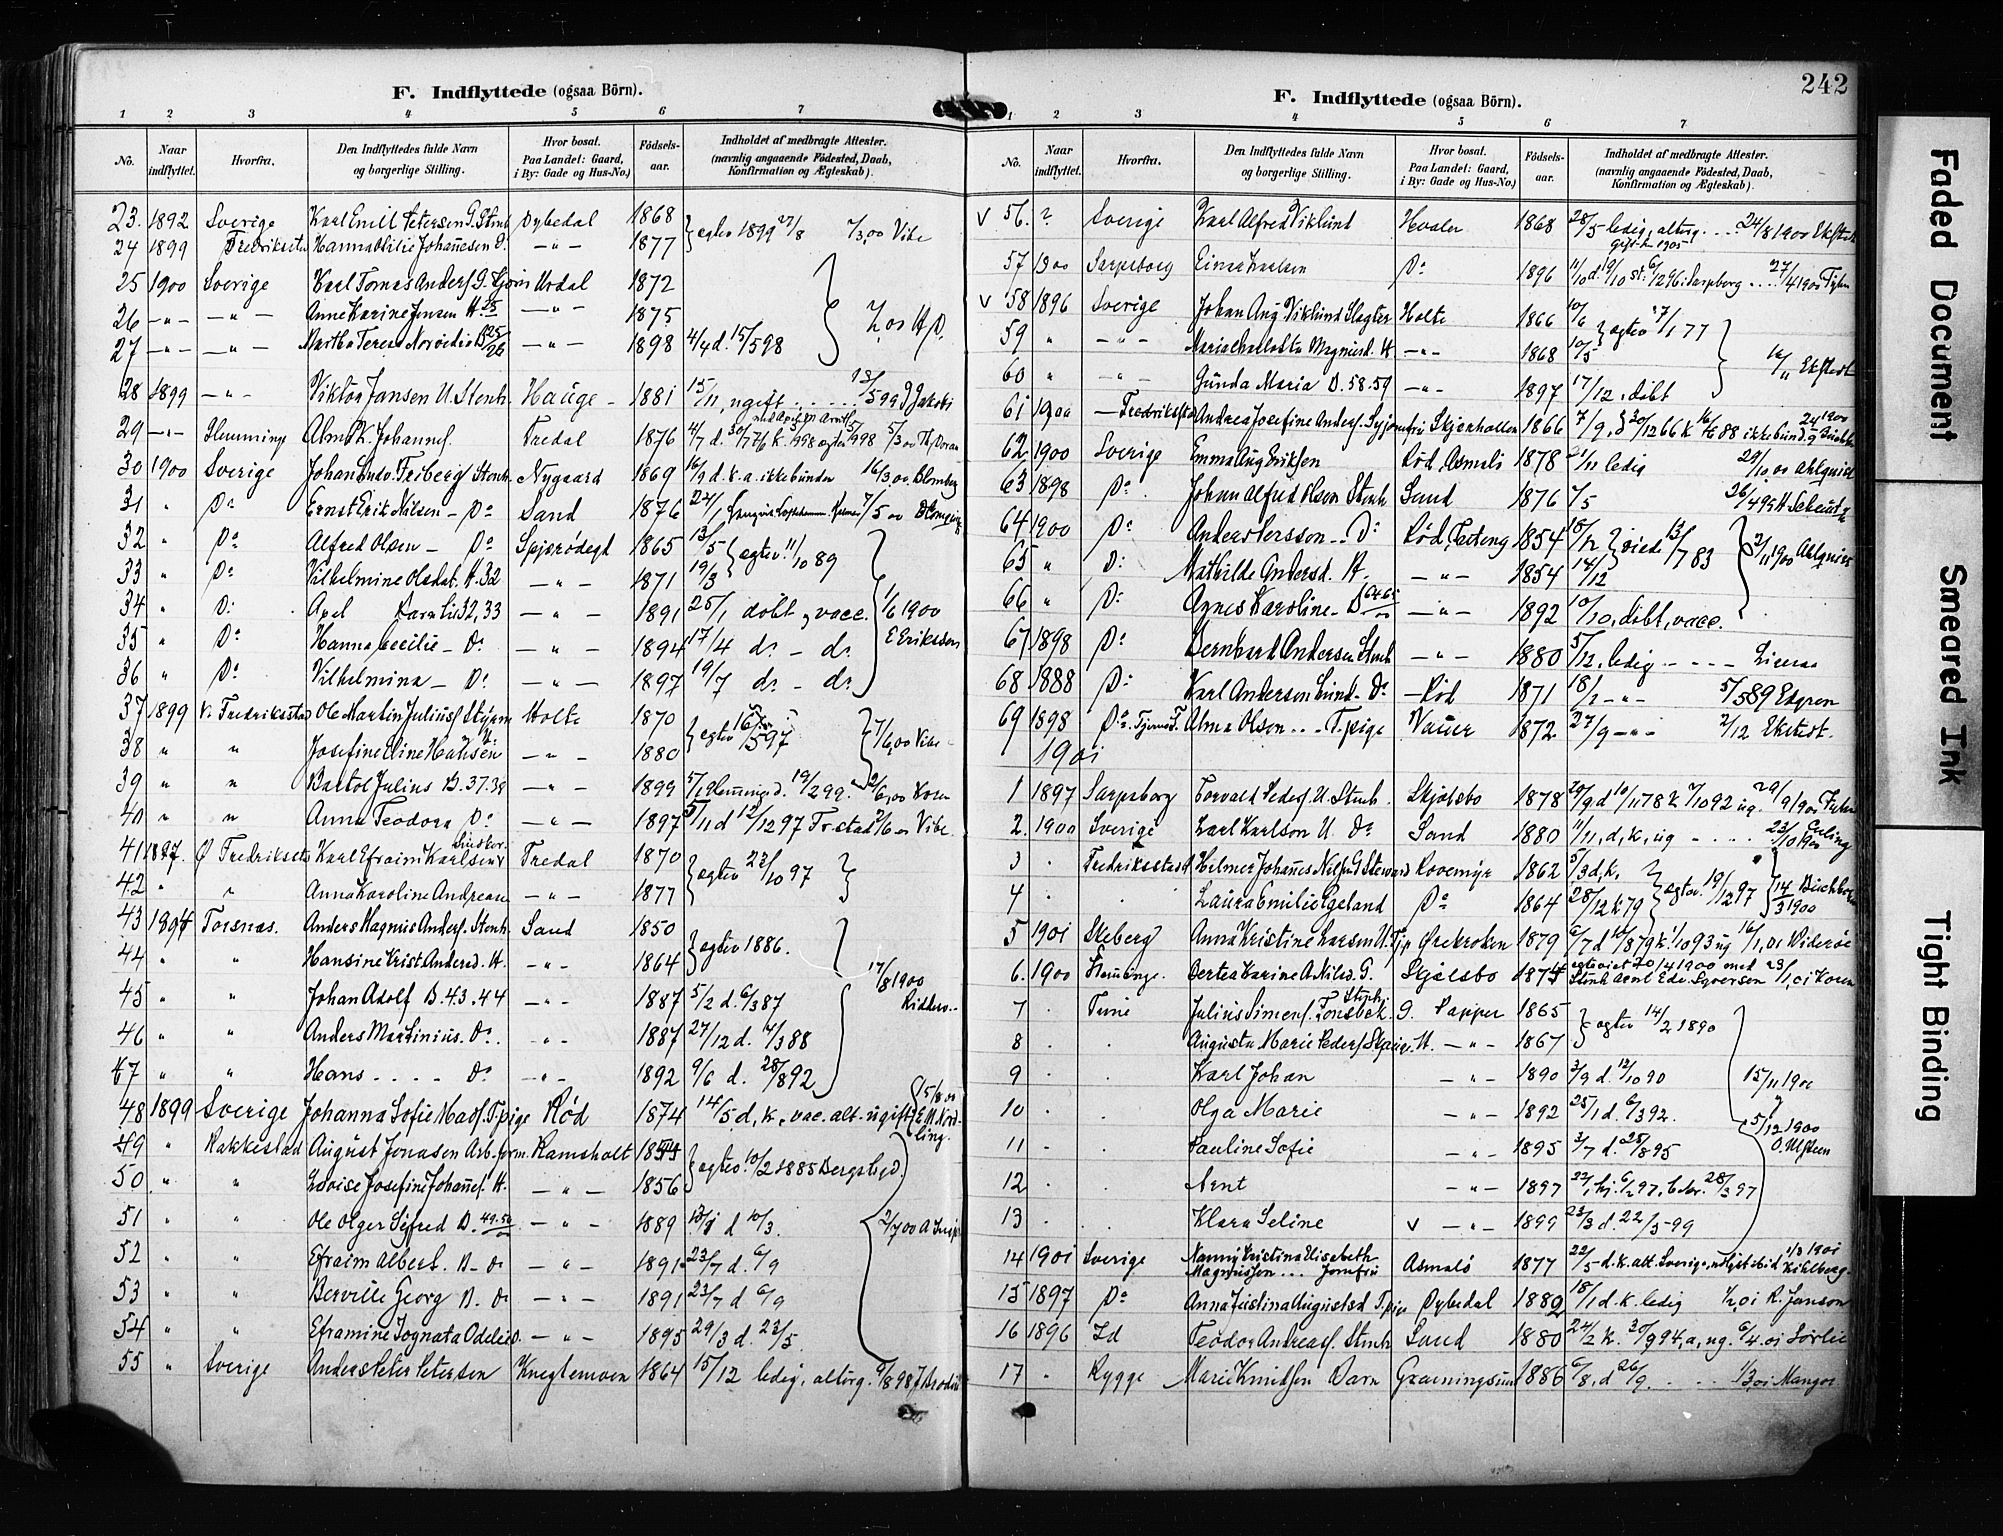 F. Indflyttede (ogsaa Börn).
1 2 3 4 5 6 7
No. Naar indflyttet. Hvorfra. Den Indflyttedes fulde Navn og borgerlige Stilling. Hvor bosat. Paa Landet: Gaard, i By: Gade og Hus-No.) Födsels-aar. Indholdet af medbragte Attester. (navnlig angaaende Födested, Daab, Konfirmation og Ægteskab).
23. 1892 Sverige Karl Emil Petersen G. Stenh Dybedal 1868 } egtev 1899 27/8 7/3,00 Vibe
24 1899 Fredrikssta Hanna Otilie Johannesen D. — " — 1877
25 1900 Sverige Karl Tomas Anders. G. Urdal 1872
26 — " — — " — Anne Karine Jensen H. 25 — " — 1875
27 — " — — " — Martha Terese 25/26 — " — 1898 4/4 d. 15/5 98
28 1899 — " — Viktor Jansen U. Stenh. Hauge - 1881 15/11, ugift ..... 13/5 99 Jakobi
29 — " — Slemminge Alma K. Johannes. Tredal 1876 4/7 d. 30/7 76 k.
30 1900 Sverige Johan Ludv. Friberg Stenh. Nygaard 1869 16/9 d. k. a. ikke bunden 16/3,00 Blomberg
31 " Do Ernst Erik Nilsen - Do Sand 1876 22/1 7/5 00
32 " Do Alfred Olsen - Do Spjærødegd 1865 13/5 } egtev. 11/10 89
33 " Do Vilhelmine Olsdat. H. 32 — " — 1871 19/3
34 " Do Axel Barn til 32,33 — " — 1891 25/1 døbt, vacc. 1/6 1900
35 " Do Hanna Cecilie - Do — " — 1894 17/4 do - do E Eriksson
36 " Do Vilhelmina - Do — " — 1897 19/7 do - do
37 1899 V. Fredriksstad Ole Martin Julius. Styrm Holte 1870 } egtev 16/5 97 7/6,00 Vibe
38 " " Josefine Eline Hansen — " — 1880
39 " " Bartol Julius B. 37.38 — " — 1899 5/1 Slemming d. 19/2 99. 2/6,00 Koren
40 " " Anna Teodora Do — " — 1897 5/11 d 12/12 97 Frstad 2/6 00 Vibe.
41 1897. Ø Fredriksst Karl Efraim Karlsen Tredal 1870 } egtev 23/10 97
42 " " Anna Karoline Andreasen — " — 1877
43 1894 Torsnæs. Anders Magnus Anders. Stenh. Sand 1850 } egtev 1886.
44 " " Hansine Krist Andersd. H. — " — 1864
45 " " Johan Adolf B. 43.44 — " — 1887 5/2 d. 6/3 87 17/8 1900 Riddervo..
46 " " Anders Martinius. Do. — " — 1887 27/12 d. 4/3 88
47 " " Hans .... Do — " — 1892 9/6 d. 28/8 92
48 1899 Sverige Johanna Sofie Mads. T. pige Rød 1874 14/5 d, k, vac. alt. ugift 15/8 00 E. M. Nordling.
49 " Rakkestad August Jonasen Arb.form. Ramsholt } egtev. 10/2 1885 Bergsbyd.
50 " " Lovise Josefine Johannes. H. — " — 1856
51 " " Ole Olger Sigfred B. 49.50 — " — 1889 d 10/3. 2/7 00
52 " " Efraim Albert. B - Do — " — 1891 23/7 d. 6/9
53 " " Berville Georg B. Do — " — 1891 23/7 d 6/9
54 " " Eframine Tognata Odelie — " — 1895 29/3 d. 23/5.
55 " Sverige Anders Peter Petersen Knegtemoen 1864 15/12 ledig, altérg. 6/8 98
242
F. Indflyttede (ogsaa Börn).
1 2 3 4 5 6 7
No. Naar indflyttet. Hvorfra. Den Indflyttedes fulde Navn og borgerlige Stilling. Hvor bosat. Paa Landet: Gaard, i By: Gade og Hus-No.) Födsels-aar. Indholdet af medbragte Attester. (navnlig angaaende Födested, Daab, Konfirmation og Ægteskab).
v 56. ? Sverige Karl Alfred Viklund Hvaler 1868 28/5 ledig, alterg. ... 24/8 1900 Ekstedt
57 1900 Sarpsborg Einar Karlsen Do 1896 11/10 d. 19/10 st. 6/12 96 i Sarpsborg .... 27/4 1900
v 58 1896 Sverige Johan Aug Viklund Slagter Holte 1866 10/6 } egtev 17/1 77
59 " — " — Maria Charlotta Magnusd. H — " — 1868 10/5 Ekstedt
60 " — " — Gunda Maria B. 58.59 — " — 1897 17/12, døbt
61 1900 — Fredrikstad Andrea Josefine Anders. Syjomfru Skjærhallen 1866 7/9, d 30/12 66 k 16/ 88 ikke bund. 24/9 1900
62 1900 Sverige Emma Aug Eriksen Rød, Asmalø 1878 21/11 ledig 29/10 00 Ahlquist
63 1898 Do. Johan Alfred Olson Stenh Sand 1876 7/5 26/4 95
64 1900 Do Anders Persson.. Do Rød, Festeng 1854 15/12 } vied 13/7 83 2/11 1900 Ahlquist
65 " Do Mathilde Andersd. H. — " — 1854 14/12
66 " Do Agnes Karoline - B 64 65 — " — 1892 10/10, døbt, vacc.
67 1898 Do Bernhard Andersen Stenh — " — 1880 5/12, ledig ....
68 1888 Do Karl Anderson Lund - Do - Rød 1871 18/1 - " - 5/5 89 Edgren
69 1898 Do Alma Olson ... T. pige Vauer 1872 27/9 - " - 2/12 Ekstedt.
1901
1 1897 Sarpsborg Torvald Peders. U. Stenh. Skjølsbo 1878 29/9 d 10/11 78 k 7/10 92 ug. 29/9 1900
2. 1900 Sverige Karl Karlson U. Do Sand 1880 11/11, d, k, ug .... 23/10 1900
3 . Fredriksstad Helmer Johannes Nils. G Steward Rovemyr 1862 5/3 d, k, } egtev. 19/12 97 14/3 1900
4 . . Laura Emilie Egeland Do 1864 28/12 k 79
5 1901 Skeberg Anna Kristine Larsen U. Tjp Ørekroken 1879 6/7 d 10/8 79 k 1/10 93 ug 16/1,01 Viderøe
6. 1900 Slemminge. Berthea Karine A. Nilsd. G. Skjølsbo 1874 egteviet 20/4 1900 med Stenh Arnt Edv. Syversen 23/1,01 Koren
7 . Tune Julius Simens. Tonsbæk G. Papper 1865 } egtev 14/2 1890
8 . . Augusta Marie Peders. H. — " — 1867
9 . . Karl Johan — " — 1890 3/9 d. 12/10 90 15/11 1900
10 . . Olga Marie — " — 1892 25/1 d 6/3 92. 5/12 1900 O. Ulsteen
11 . . Pauline Sofie — " — 1895 3/7 d. 25/8 95
12 . . Arnt — " — 1897 22/1 hj. 6/2 97, 28/3 97
13 . . Klara Seline v — " — 1899 23/3 d. 22/5 99
14 1901 Sverige Nanny Kristina Elisabeth Magnusson ... Jomfru Asmalø 1877 22/5 d. k. alt. Sverige, 1/3 1901 Kihlberg.
15 1897 Do Anna Justina Augustsd T. pige Dybedal 1882 18/1 d. k. ledig 1/2 01 R. Janson
16 1896 Id Teodor Andreas. Stenh Sand 1880 24/2 k. 30/9 94, a, ug. 6/4.01 Sørlie
17 . Rygge Marie Knudsen Barn Græningsund 1886 6/8, d 26/9 .. .. 1/3,01 Mangor
Faded Document
Smeared Ink
Tight Binding